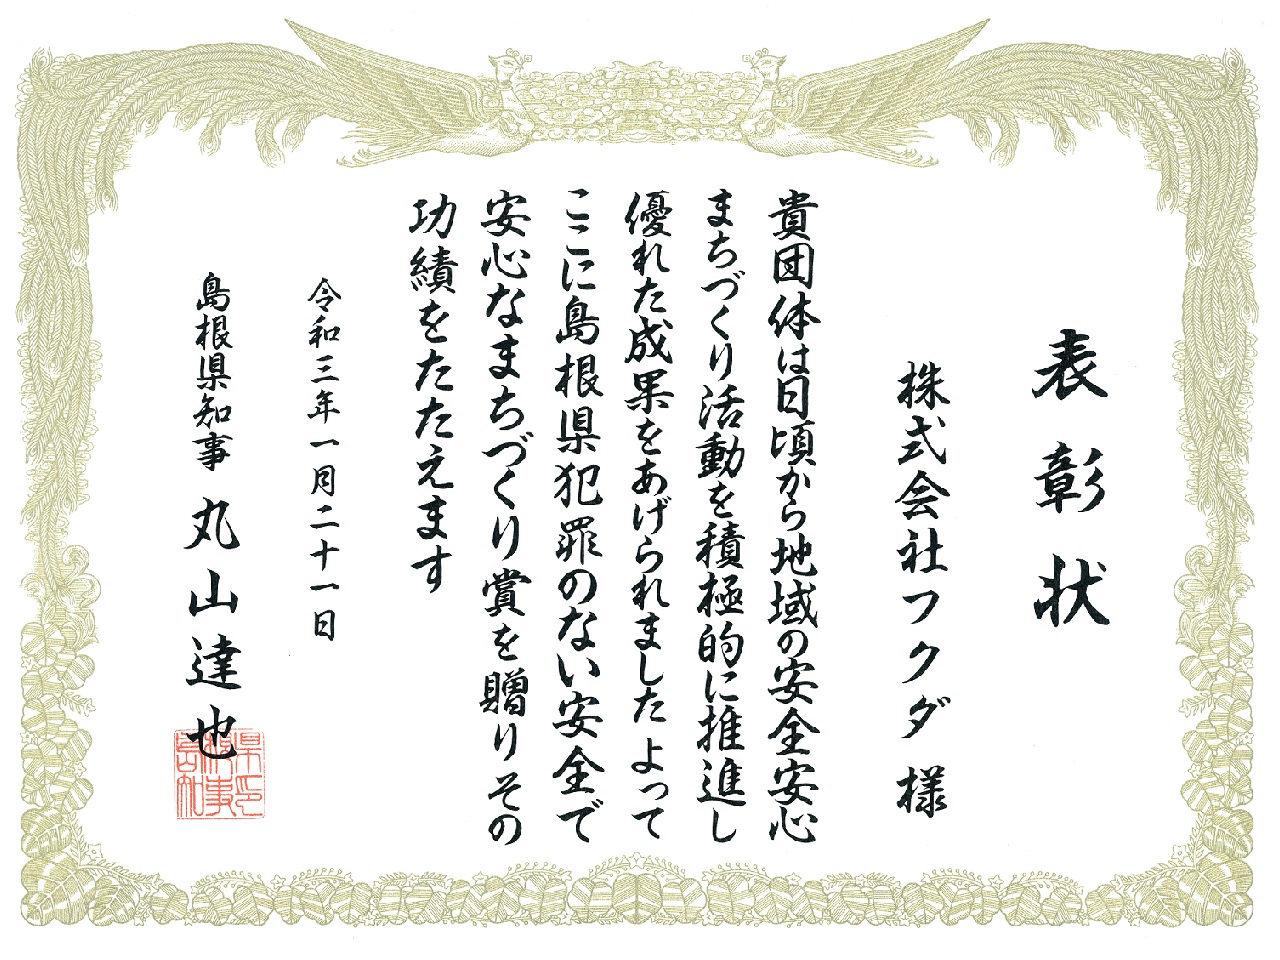 表彰状
株式会社フクダ様
貴団体は日頃から地域の安全安心
まちづくり活動を積極的に推進し
優れた成果をあげられましたよって
ここに島根県犯罪のない安全で
安心なまちづくり賞を贈りその
功績をたたえます
令和三年一月二十一日
島根県知事 丸山達也
島根県知事印